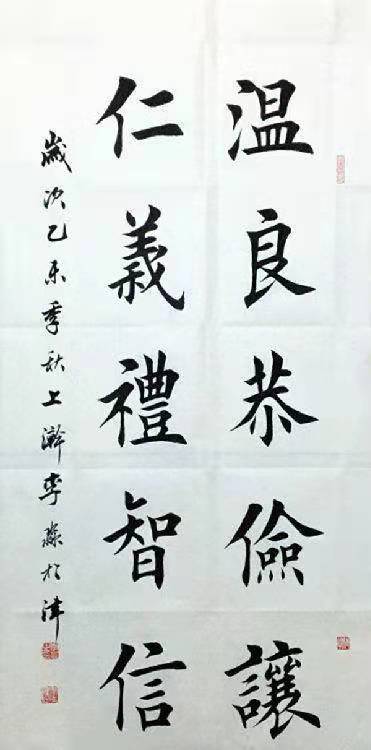 温良恭儉讓
仁義禮智信
歲次乙未季秋上澣李淼於津